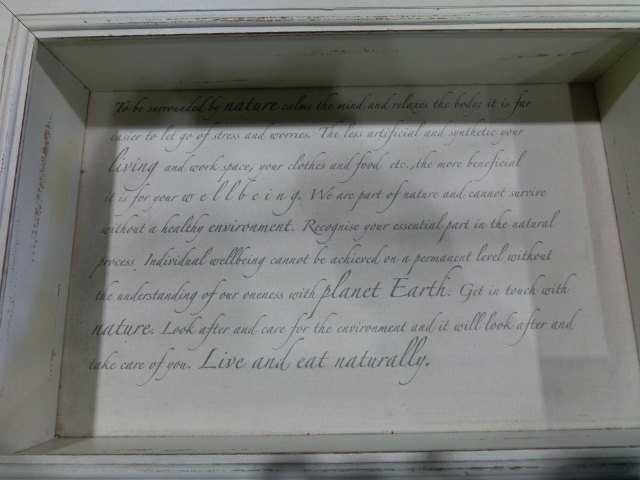 To be surrounded by nature calms the mind and relaxes the body; it is far
easier to let go of stress and worries. The less artificial and synthetic your
living and work space, your clothes and food etc., the more beneficial
it is for your wellbeing. We are part of nature and cannot survive
without a healthy environment. Recognise your essential part in the natural
process. Individual wellbeing cannot be achieved on a permanent level without
the understanding of our oneness with planet Earth. Get in touch with
nature. Look after and care for the environment and it will look after and
take care of you. Live and eat naturally.